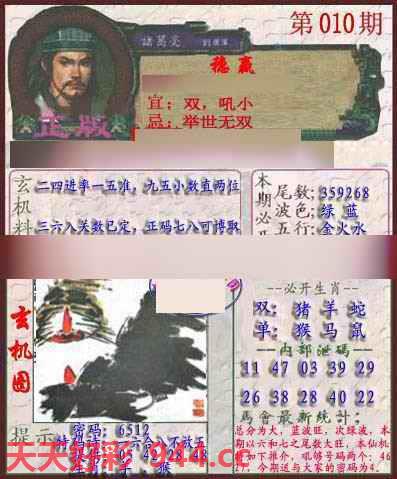 第010期
諸葛亮
稳赢
宜：双，吼小
忌：举世无双
正版
玄机料
二四进率一五准，九五小数直两位
三六入关数已定，正码七八可博取
本期必开
尾数：359268
波色：绿 蓝
五行：金火水
玄机图
--必开生肖--
双：猪 羊 蛇
单：猴 马 鼠
--内部泄码--
11 47 03 39 29
26 38 28 40 22
馬會最新統計：
总分为大，蓝波旺，次绿波，本
期以六和七之尾数大旺，本仙机
46
今期送与大家的密码为4.
提示
密码：6512
天天好彩 944.cc